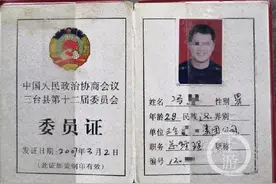 中国人民政治协商会议
三台县第十二届委员会
委员证
发证日期2007年3月2日
(此证加盖钢印有效)
姓名 冯 性别 男
年龄 28 民族 汉 界别
单位 三台 集团公司
职务 总经理 职称
编号 12